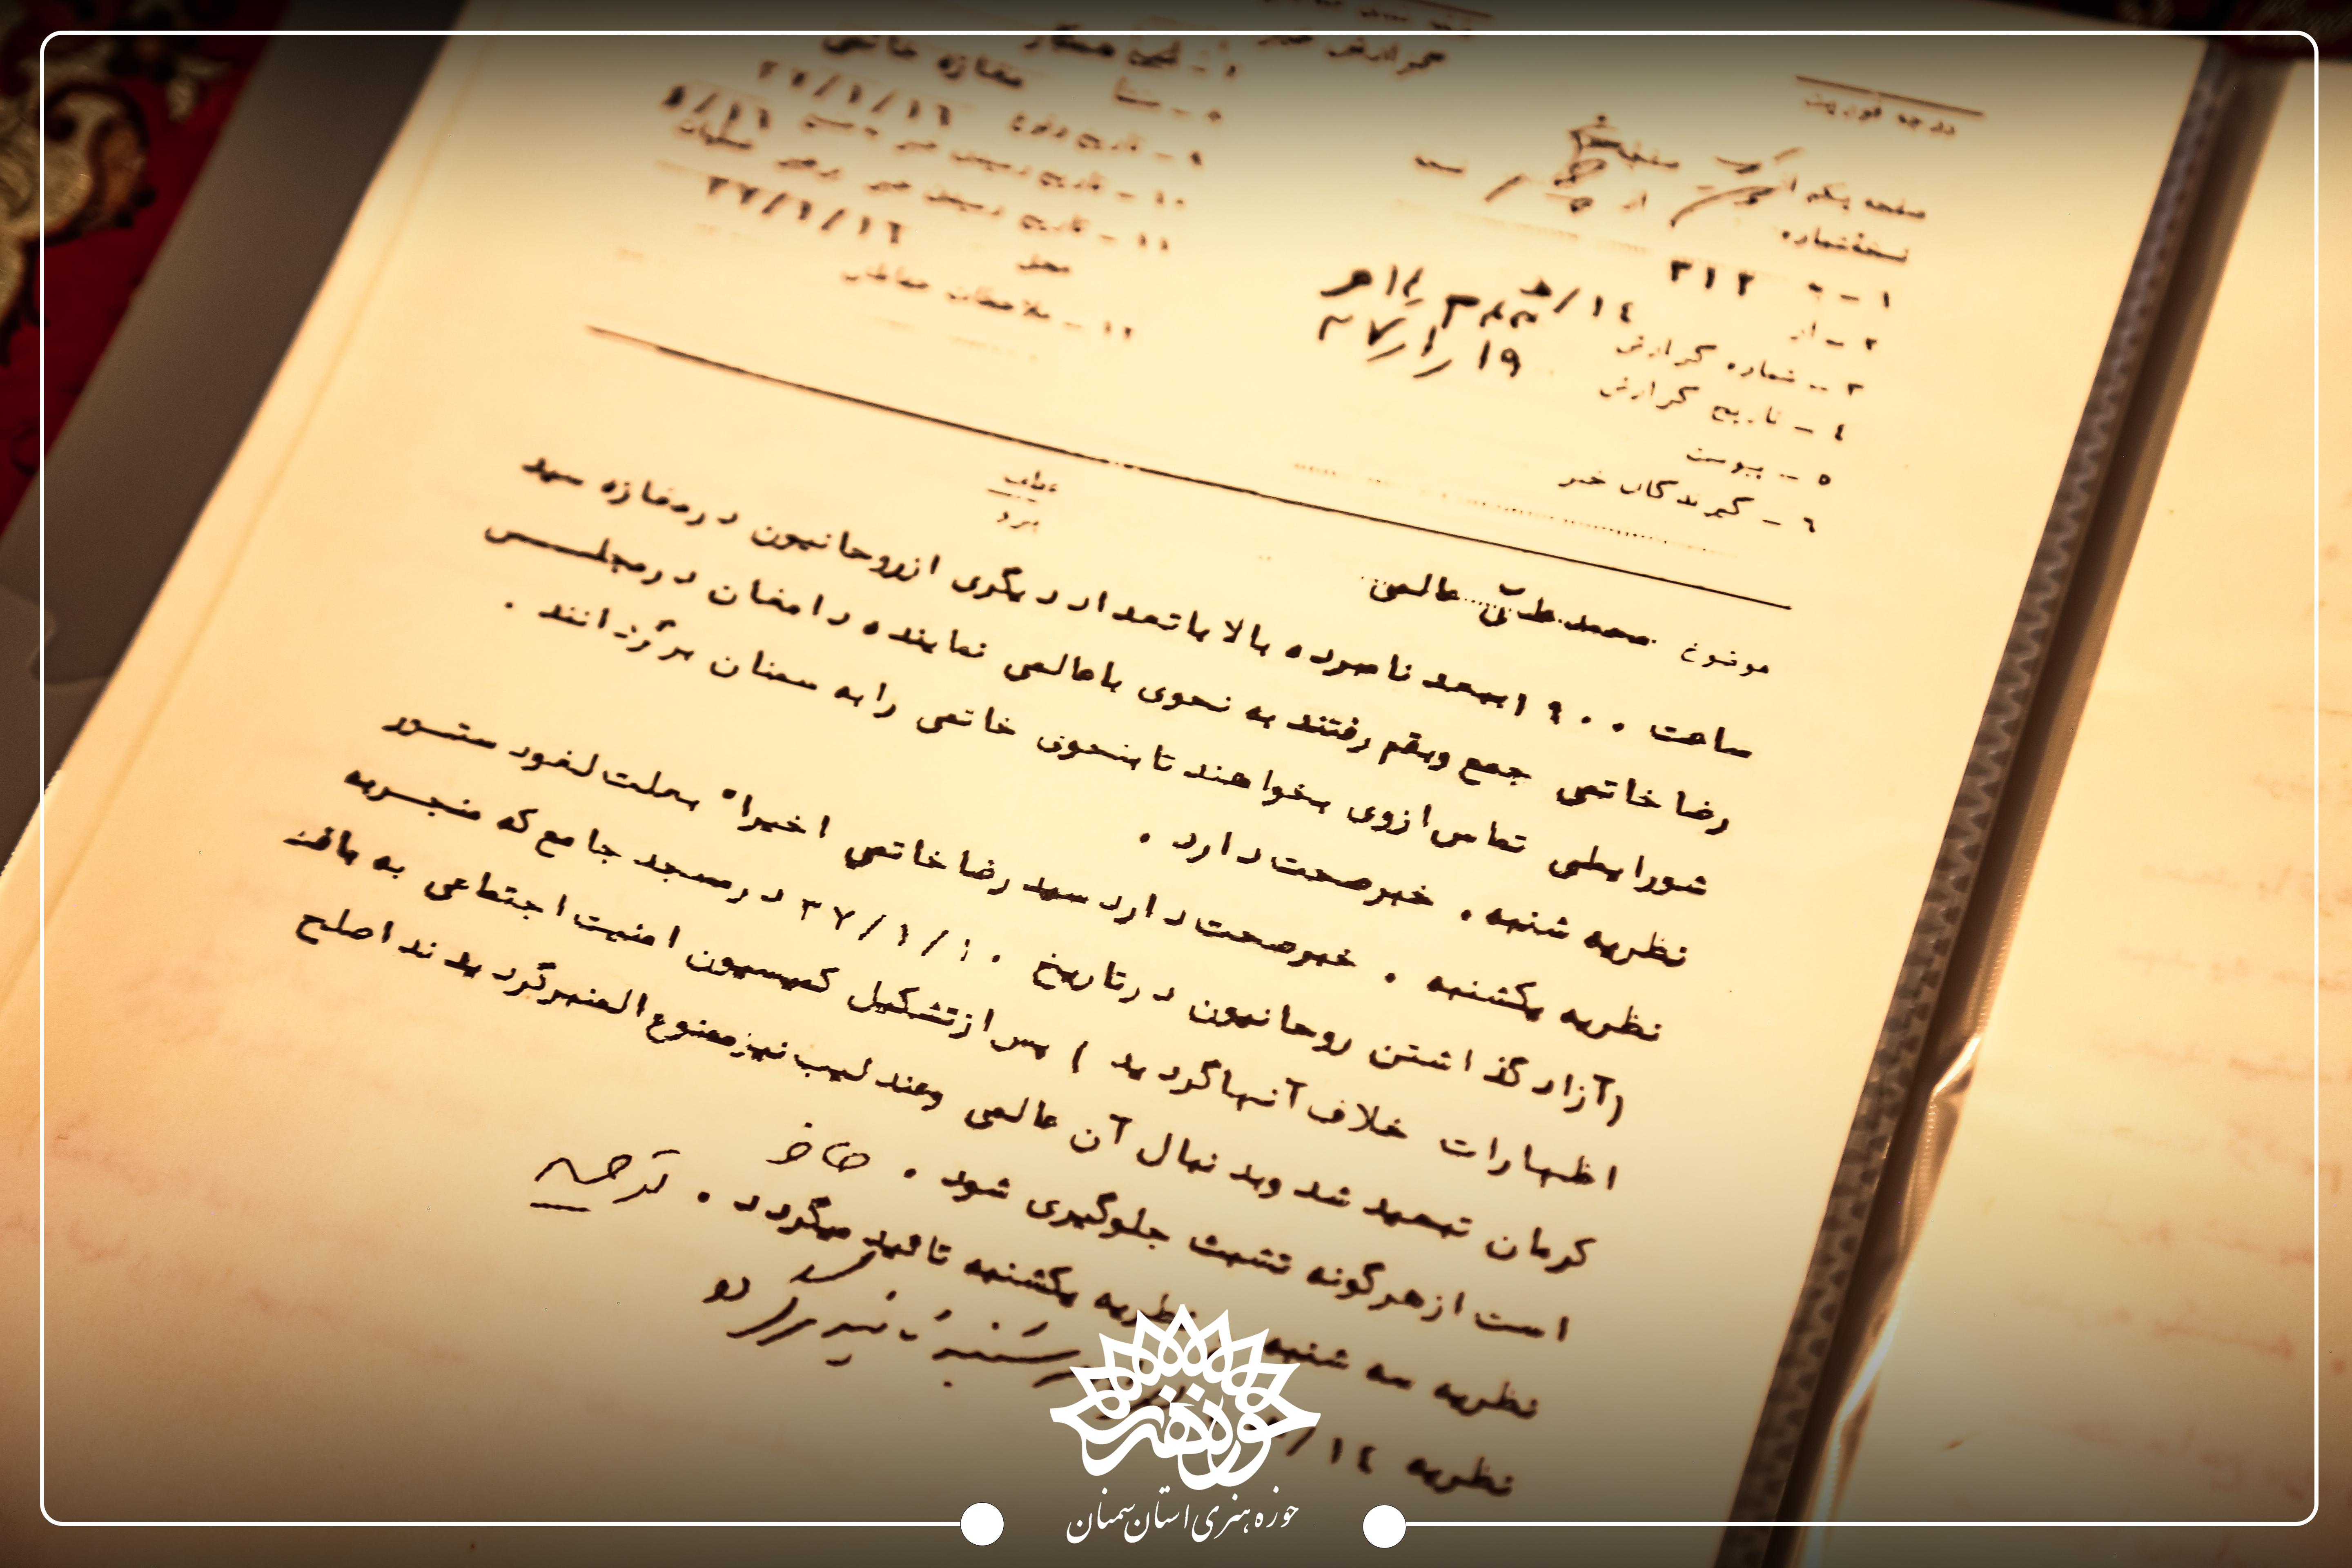 درجه فوریت
گزارش خبر
نسخه شماره
۱ - به ۳۱۲
۲ - از
۱۴/ه
۳ - شماره گزارش
۴ - تاریخ گزارش ۱۹ر۱ر۳۷
۵ - پیوست
۶ - گیرندگان خبر
مغازه خاتمی
۸ - منشأ
۹ - تاریخ وقوع ۳۷/۱/۱۶
۱۰ - تاریخ رسیدن خبر به منبع ۱/۱۶
۱۱ - تاریخ رسیدن خبر برهبر عملیات
محل ۳۷/۱/۱۶
۱۲ - ملاحظات حفاظتی
عطف
پیرو
موضوع محمد علی عالمی
ساعت ۱۹۰۰ ببعد نامبرده بالا با تعداد دیگری از روحانیون در مغازه سید
رضا خاتمی جمع و بقم رفتند به نحوی با عالمی نماینده دامغان در مجلس
شورا بطی تماس از وی بخواهند تا بنحوی خاتمی را به سمنان برگردانند .
نظریه شنبه . خبر صحت دارد .
نظریه یکشنبه . خبر صحت دارد سید رضا خاتمی اخیرا" بعلت لغو دستور
(آزاد گذاشتن روحانیون در تاریخ ۳۷/۱/۱۰ در مسجد جامع که منجر به
اظهارات خلاف آنها گردید ) پس از تشکیل کمیسیون امنیت اجتماعی به بافت
کرمان تبعید شد و بدنبال آن عالمی و عندلیب نیز ممنوع المنبر گردیدند اصلح
است از هرگونه تشبث جلوگیری شود .
نظریه سه شنبه نظریه یکشنبه تائید میگردد .
نظریه ۱۴/
حوزه هنری
حوزه هنری استان سمنان